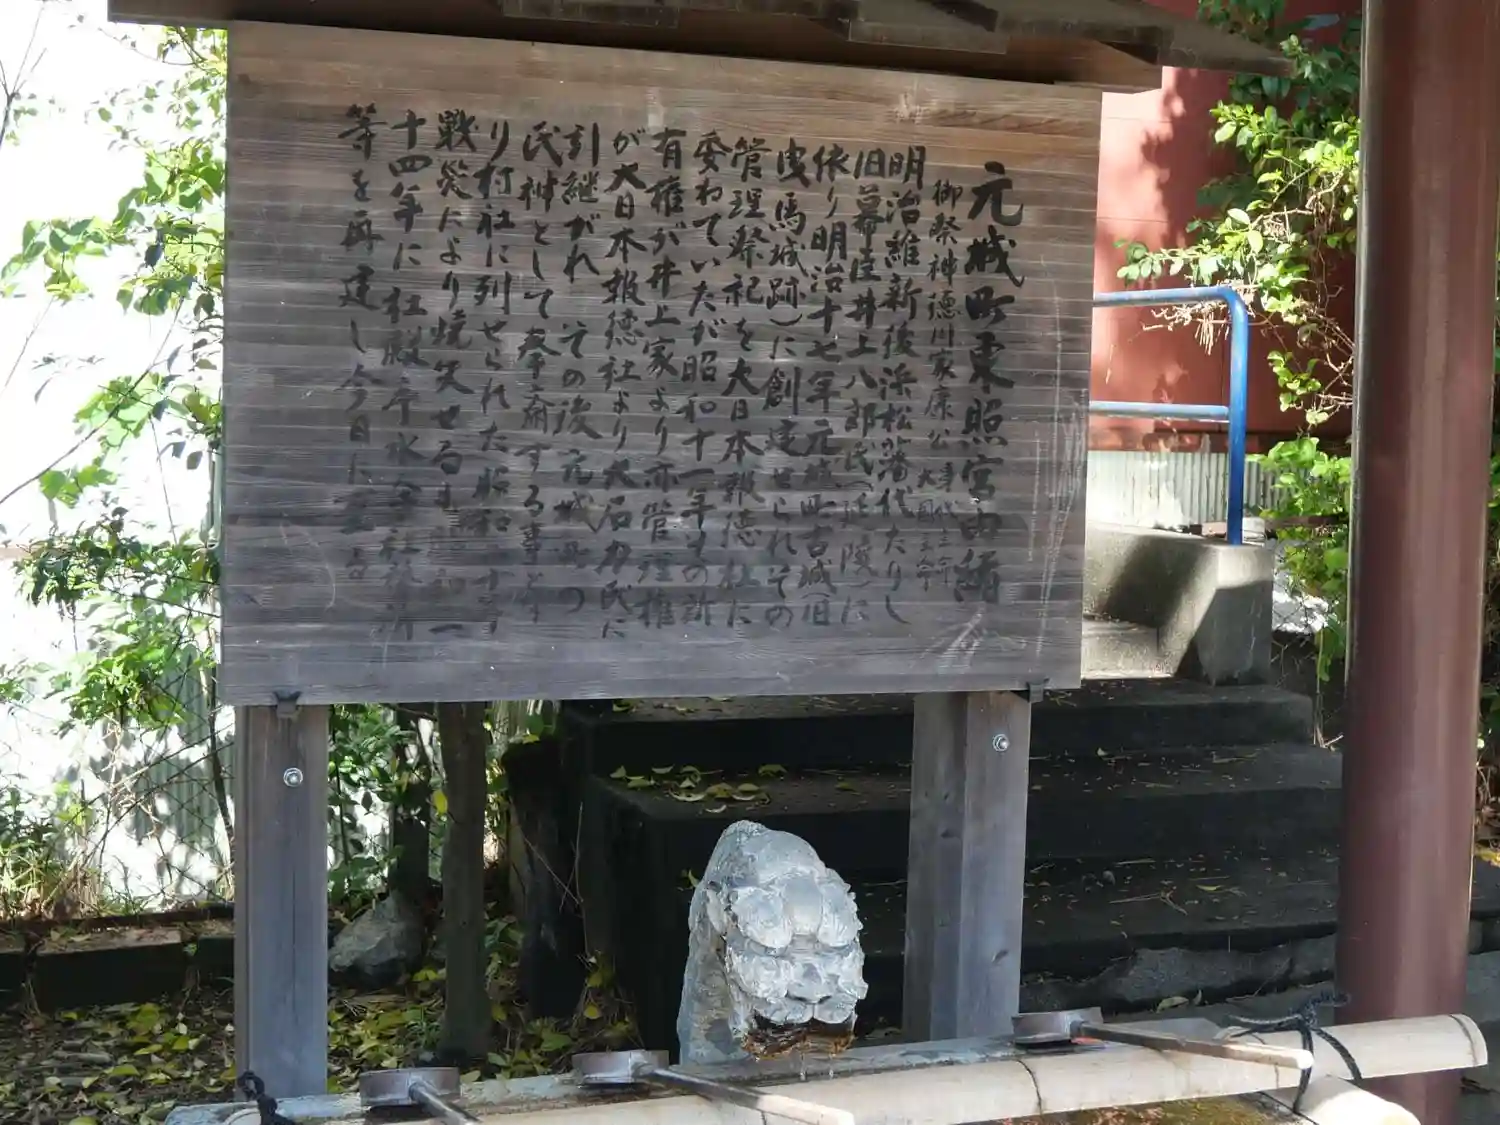 元城町東照宮由緒
御祭神徳川家康公 事代主命
大国主命
明治維新後浜松藩代たりし
旧幕臣井上八郎氏(延陵)に
依り明治十七年元城町古城(旧
曳馬城跡)に創建せられその
管理祭祀を大日本報徳社に
委ねていたが昭和十一年その所
有権が井上家より亦管理権
が大日本報徳社より大石力氏に
引継がれ その後元城町の
氏神として奉斎する事とな
り村社に列せられた昭和二十年
戦災により焼失せるも 和
十四年に社殿 水舎社務所
等を再建し今日に至る